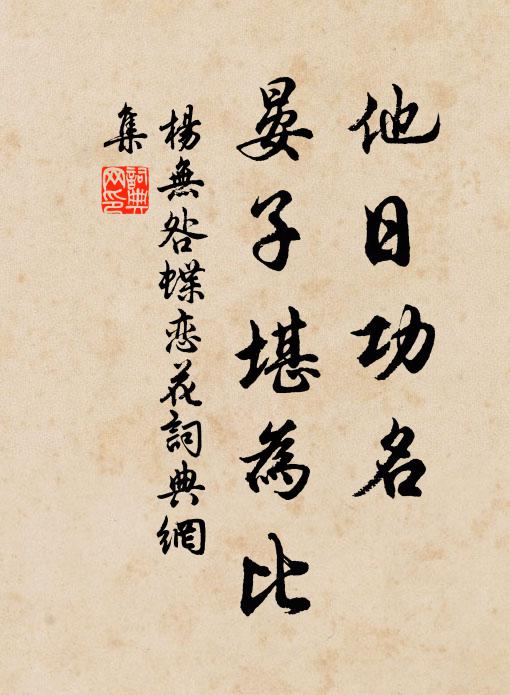 他日功名
晏子堪為比
楊無咎蝶恋花詞典網
集
詞典
网印